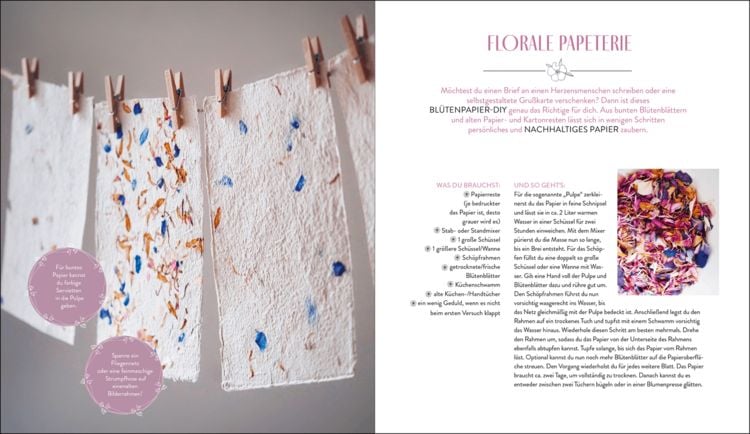 Für buntes
Papier kannst
du farbige
Servietten
in die Pulpe
geben.
Spanne ein
Fliegennetz
oder eine feinmaschige
Strumpfhose auf
einenalten
Bilderrahmen!
FLORALE PAPETERIE
Möchtest du einen Brief an einen Herzensmenschen schreiben oder eine
selbstgestaltete Grußkarte verschenken? Dann ist dieses
BLÜTENPAPIER-DIY genau das Richtige für dich. Aus bunten Blütenblättern
und alten Papier- und Kartonresten lässt sich in wenigen Schritten
persönliches und NACHHALTIGES PAPIER zaubern.
WAS DU BRAUCHST:
Papierreste
(je bedruckter
das Papier ist, desto
grauer wird es)
Stab- oder Standmixer
1 große Schüssel
1 größere Schüssel/Wanne
Schöpfrahmen
getrocknete/frische
Blütenblätter
Küchenschwamm
alte Küchen-/Handtücher
ein wenig Geduld, wenn es nicht
beim ersten Versuch klappt
UND SO GEHT'S:
Für die sogenannte „Pulpe“ zerklei-
nerst du das Papier in feine Schnipsel
und lässt sie in ca. 2 Liter warmen
Wasser in einer Schüssel für zwei
Stunden einweichen. Mit dem Mixer
pürierst du die Masse nun so lange,
bis ein Brei entsteht. Für das Schöp-
fen füllst du eine doppelt so große
Schüssel oder eine Wanne mit Was-
ser. Gib eine Hand voll der Pulpe und
Blütenblätter dazu und rühre gut um.
Den Schöpfrahmen führst du nun
vorsichtig waagerecht ins Wasser, bis
das Netz gleichmäßig mit der Pulpe bedeckt ist. Anschließend legst du den
Rahmen auf ein trockenes Tuch und tupfst mit einem Schwamm vorsichtig
das Wasser hinaus. Wiederhole diesen Schritt am besten mehrmals. Drehe
den Rahmen um, sodass du das Papier von der Unterseite des Rahmens
ebenfalls abtupfen kannst. Tupfe solange, bis sich das Papier vom Rahmen
löst. Optional kannst du nun noch mehr Blütenblätter auf die Papieroberflä-
che streuen. Den Vorgang wiederholst du für jedes weitere Blatt. Das Papier
braucht ca. zwei Tage, um vollständig zu trocknen. Danach kannst du es
entweder zwischen zwei Tüchern bügeln oder in einer Blumenpresse glätten.